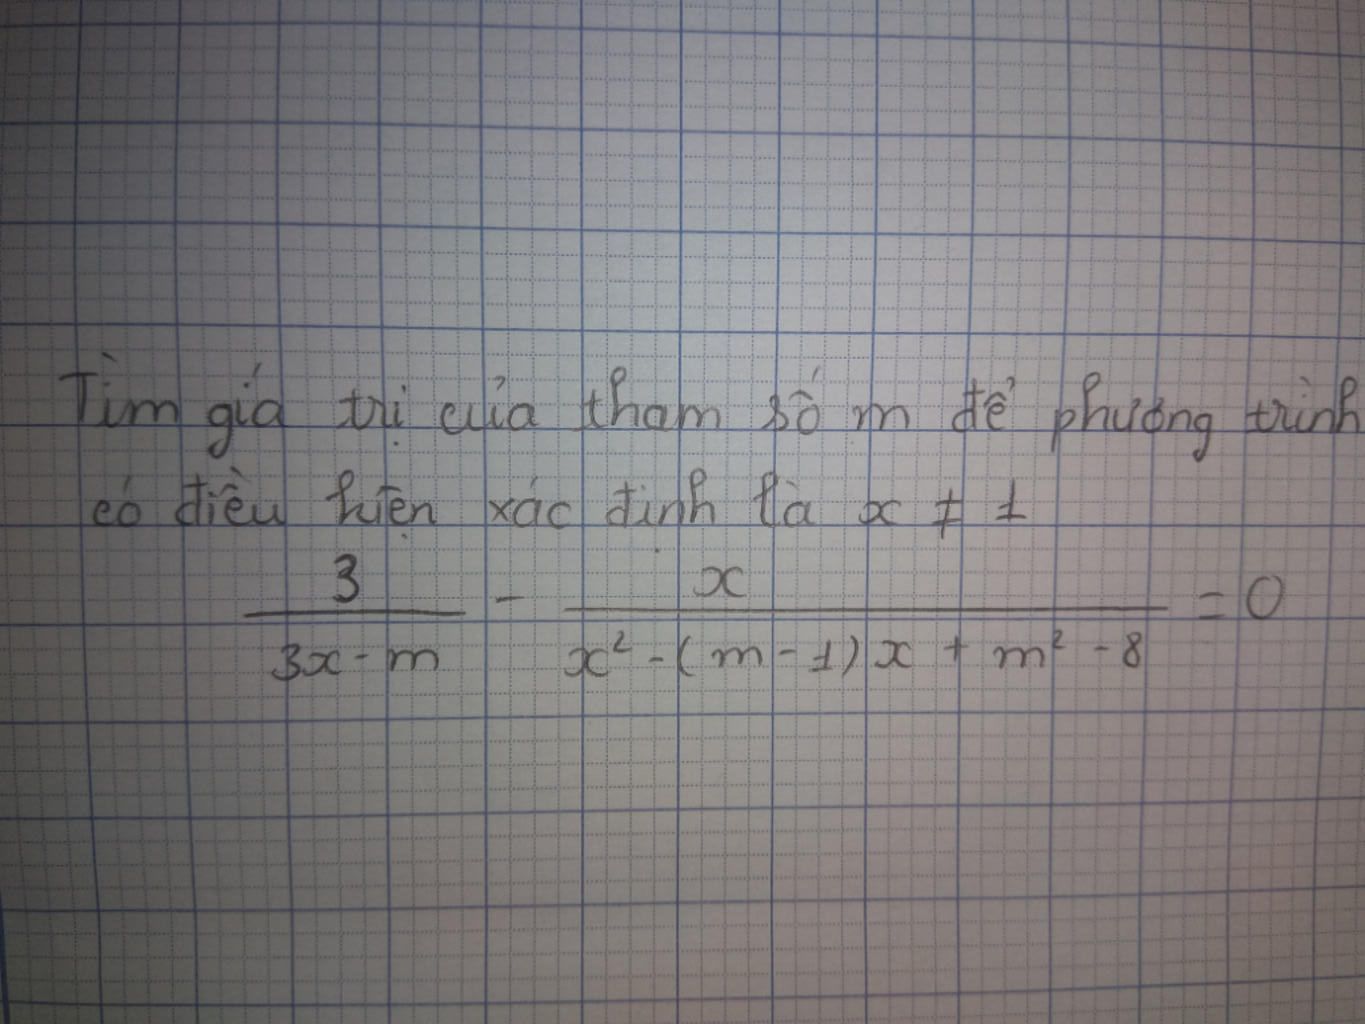 Tìm giá trị của tham số m để phương trình
có điều kiện xác định là x ≠ 1
3/(3x - m) - x/(x² - (m - 1)x + m² - 8) = 0